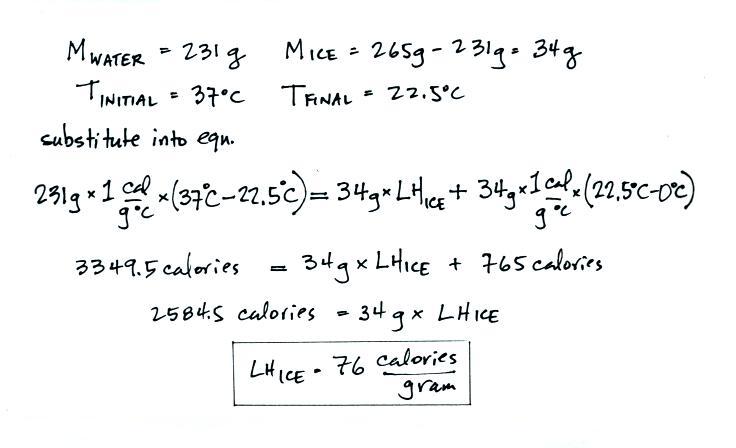 M WATER = 231 g M ICE = 265g - 231g = 34g
T INITIAL = 37°C T FINAL = 22.5°C
substitute into eqn.
231g × 1 cal/g°C × (37°C - 22.5°C) = 34g × LH ICE + 34g × 1 cal/g°C × (22.5°C - 0°C)
3349.5 calories = 34g × LH ICE + 765 calories
2584.5 calories = 34 g × LH ICE
LH ICE = 76 calories/gram